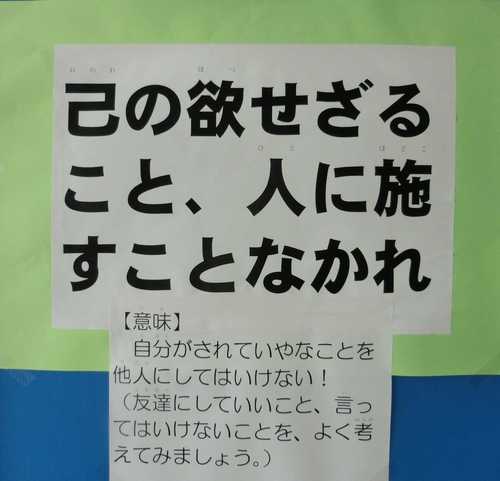 己の欲せざる
こと、人に施
すことなかれ
【意味】
自分がされていやなことを
他人にしてはいけない！
（友達にしていいこと、言っ
てはいけないことを、よく考
えてみましょう。）